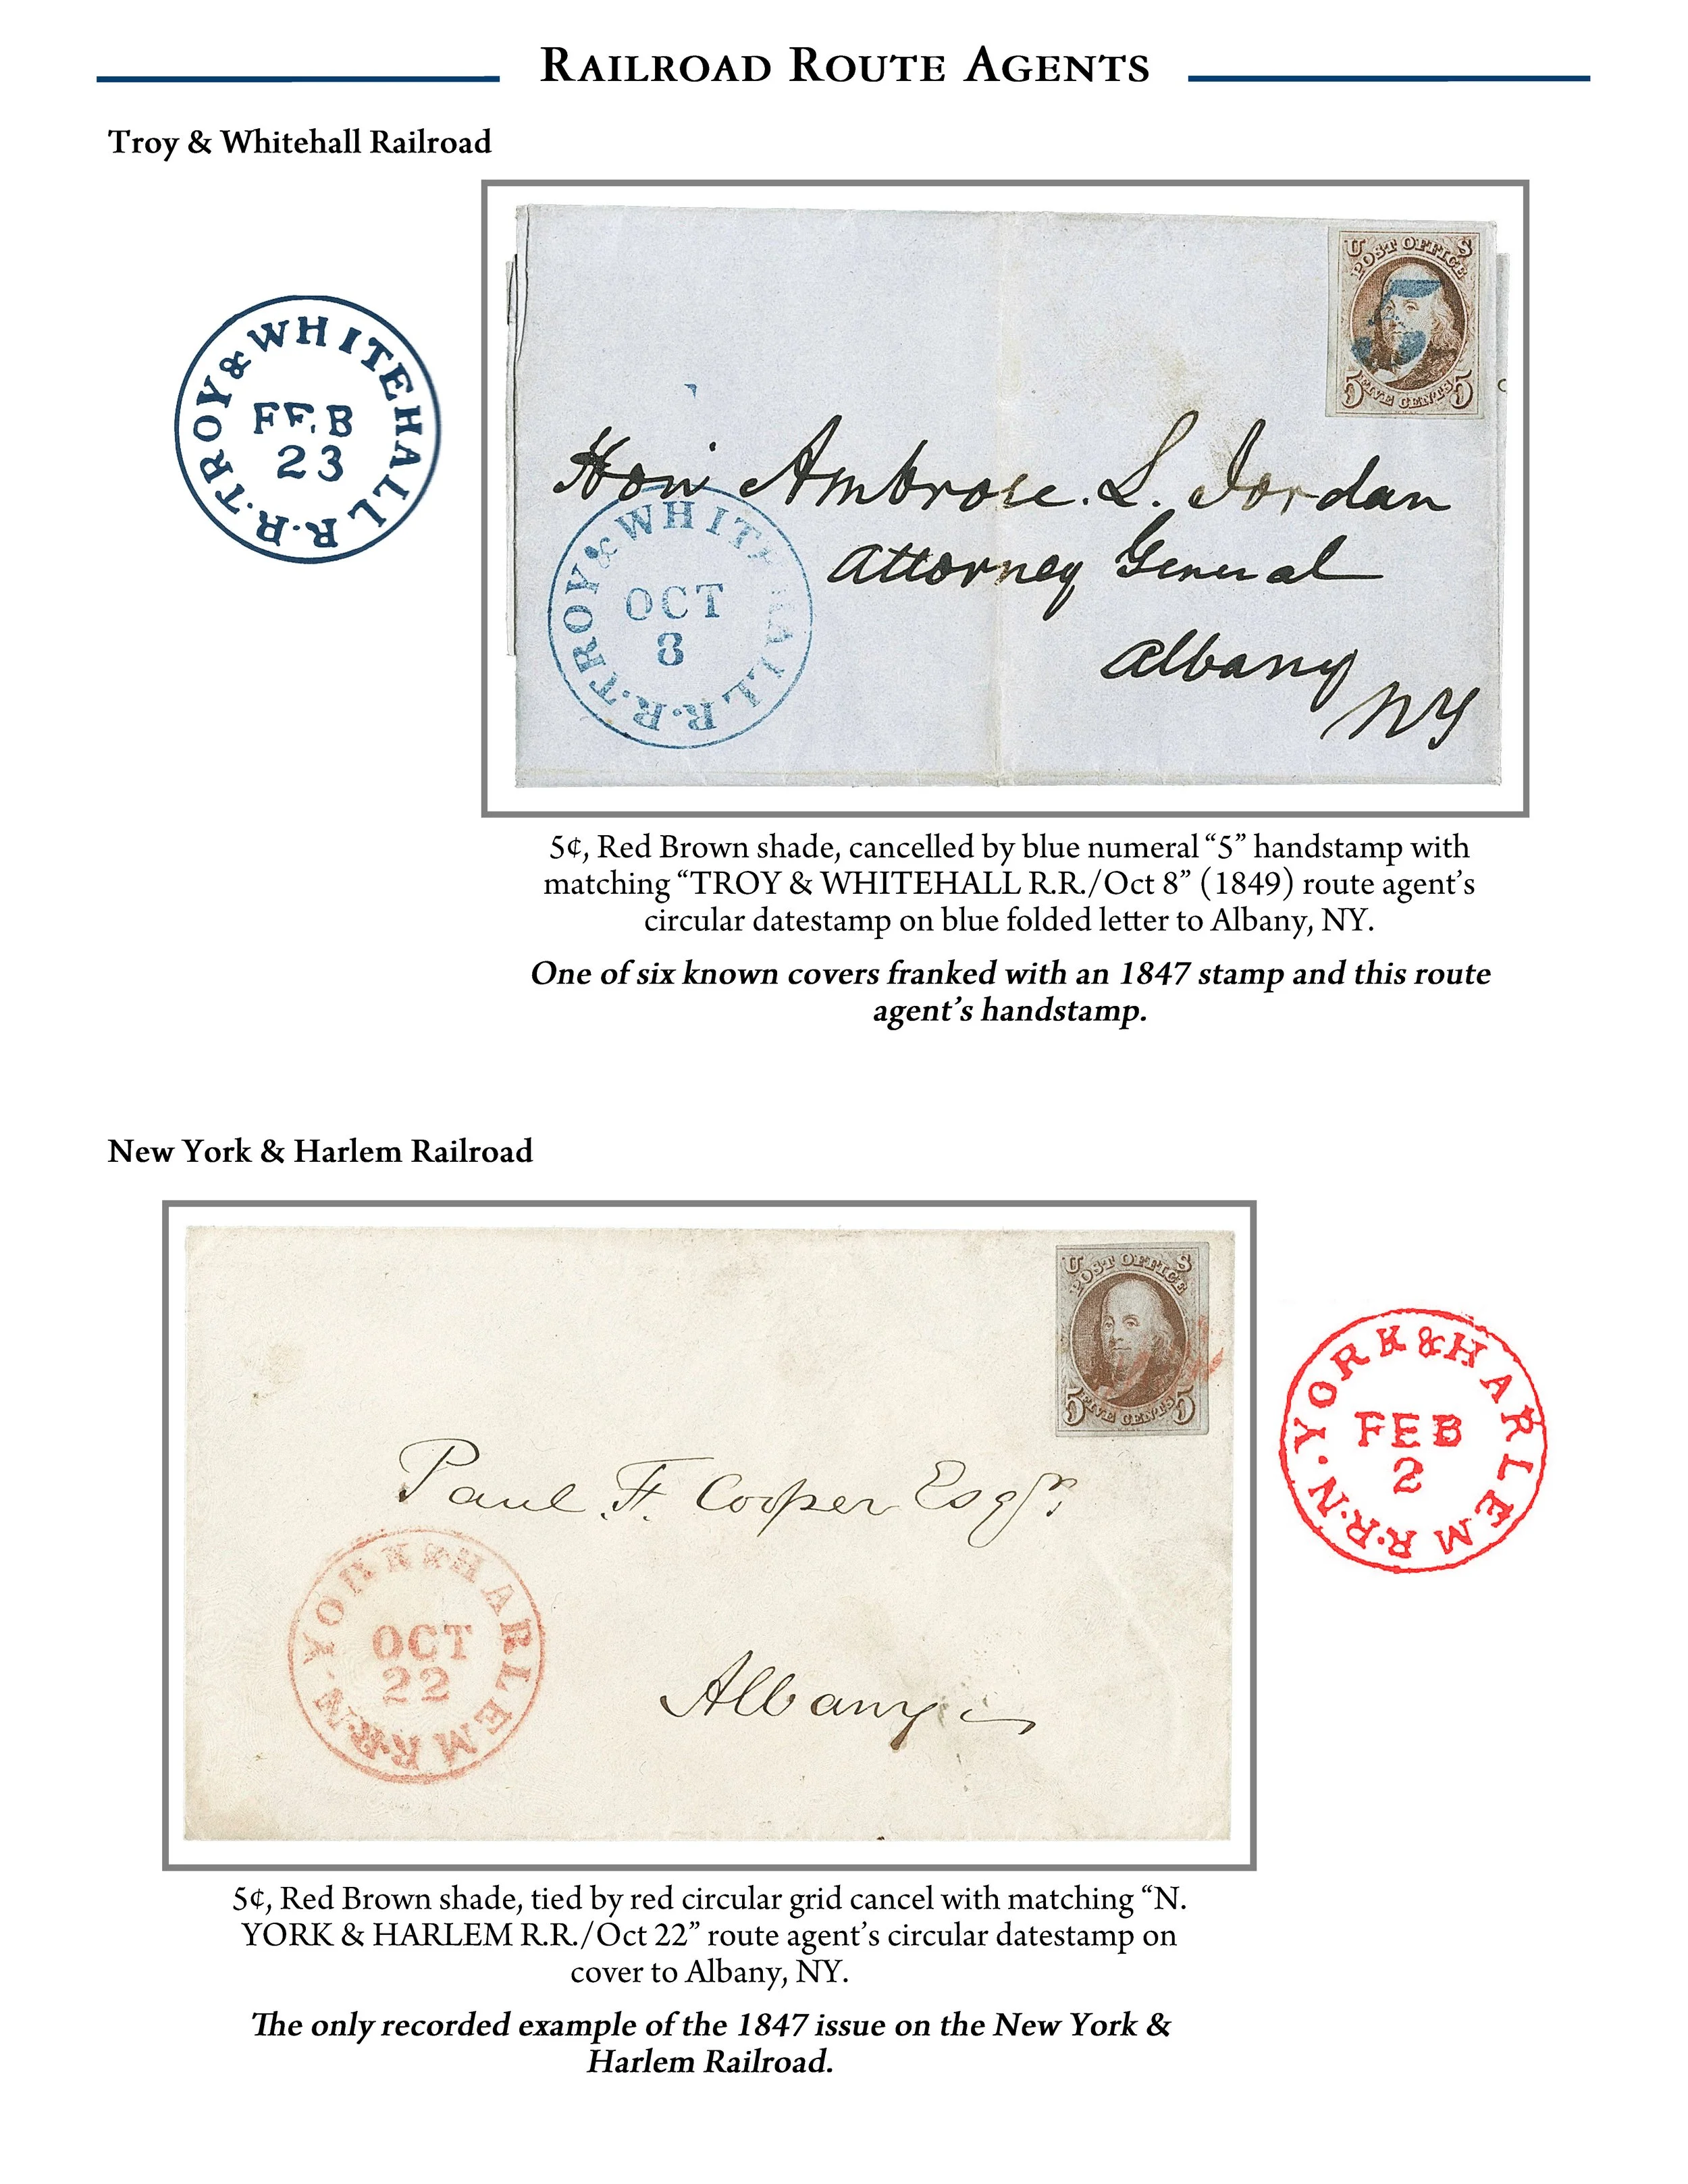 Railroad Route Agents
Troy & Whitehall Railroad
TROY & WHITEHALL R.R.
FEB
23
U S
POST OFFICE
5
5 FIVE CENTS 5
Hon Ambrose. L. Jordan
Attorney General
Albany
NY
TROY & WHITEHALL R.R.
OCT
8
5¢, Red Brown shade, cancelled by blue numeral “5” handstamp with
matching “TROY & WHITEHALL R.R./Oct 8” (1849) route agent’s
circular datestamp on blue folded letter to Albany, NY.
One of six known covers franked with an 1847 stamp and this route
agent’s handstamp.
New York & Harlem Railroad
U S
POST OFFICE
5 FIVE CENTS 5
Paul F. Cooper Esqr.
Albany
N. YORK & HARLEM R.R.
OCT
22
N. YORK & HARLEM R.R.
FEB
2
5¢, Red Brown shade, tied by red circular grid cancel with matching “N.
YORK & HARLEM R.R./Oct 22” route agent’s circular datestamp on
cover to Albany, NY.
The only recorded example of the 1847 issue on the New York &
Harlem Railroad.